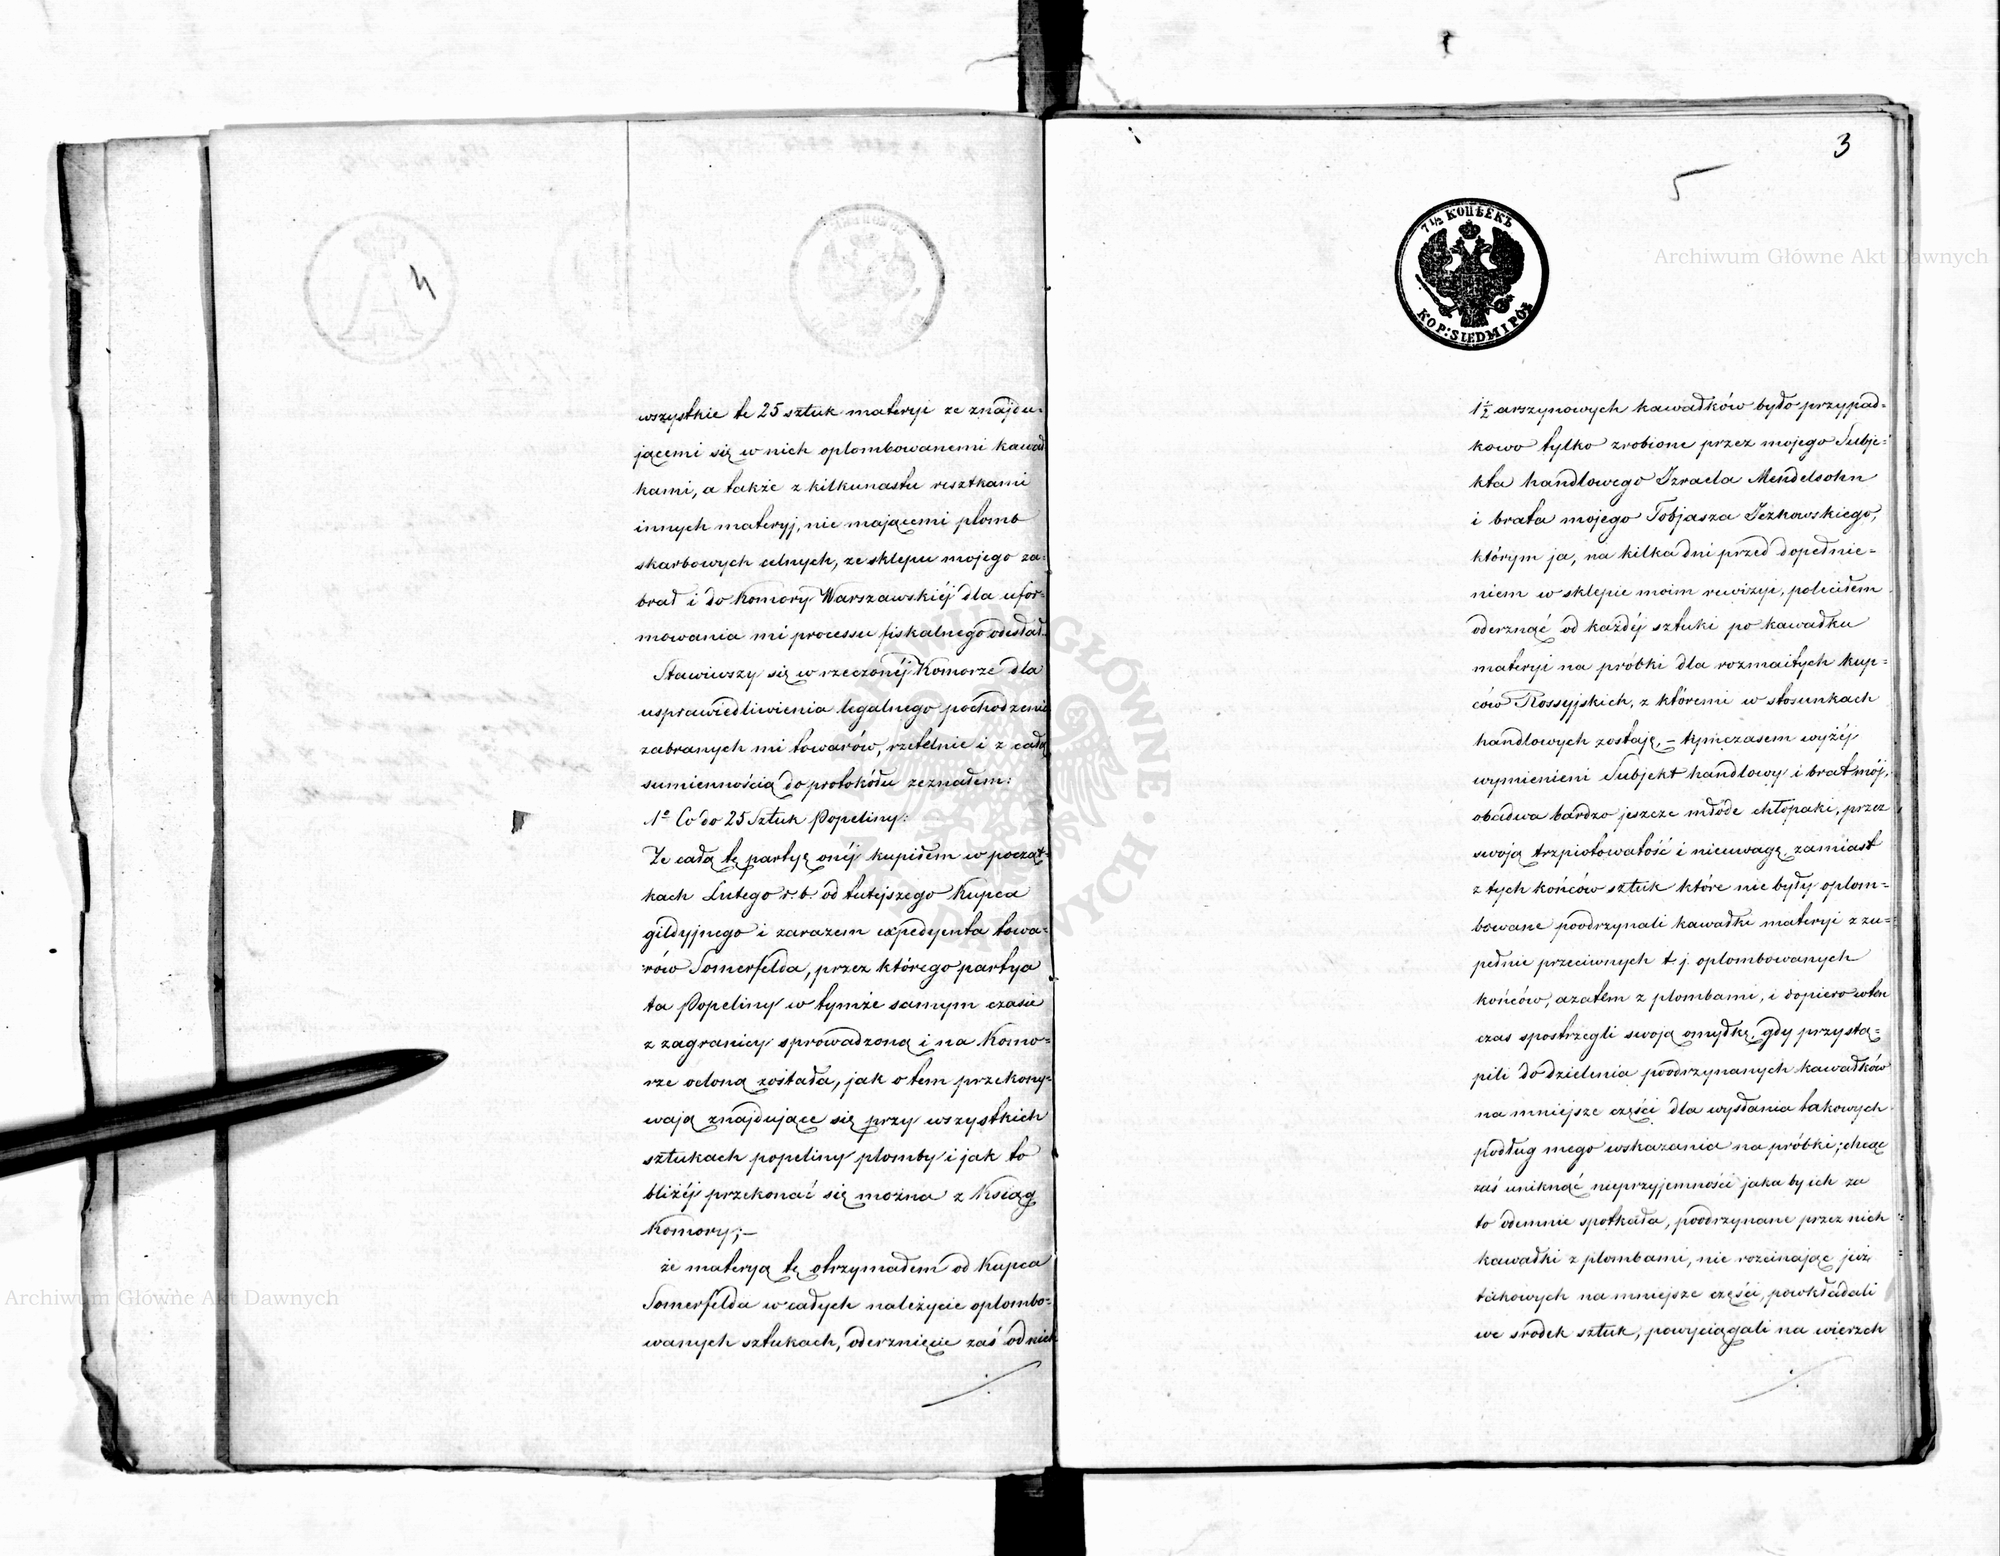 4
wszystkie te 25 sztuk materyi ze znajdu-
jącemi się w nich oplombowanemi kawał
kami, a także z kilkunastu resztkami
innych materyj, nie mającemi plomb
skarbowych celnych, ze sklepu mojego za-
brał i do Komory Warszawskiéj dla ufor-
mowania mi processu fiskalnego odesłał.
Stawiwszy się w rzeczonéj Komorze dla
usprawiedliwienia legalnego pochodzenia
zabranych mi towarów, rzetelnie i z całą
sumiennością do protokółu zeznałem:
1o Co do 25 Sztuk Popeliny:
Że całą tę partyę onéj kupiłem w począt-
kach Lutego r. b. od tutejszego Kupca
gildyjnego i zarazem expedyenta towa-
rów Somerfelda, przez którego partya
ta Popeliny w tymże samym czasie
z zagranicy sprowadzoną i na Komo-
rze ocloną została, jak o tem przekony-
wają znajdujące się przy wszystkich
sztukach popeliny plomby i jak to
bliżéj przekonać się można z Ksiąg
Komory; —
że materyą tę otrzymałem od Kupca
Somerfelda w całych należycie oplombo-
wanych sztukach, oderznięcie zaś od nich
3
5
7 1/2 КОПѢЕКЪ
KOP: SIEDMIPÓŁ
1 1/2 arszynowych kawałków było przypad-
kowo tylko zrobione przez mojego Subje-
kta handlowego Izraela Mendelsohn
i brata mojego Tobjasza Jezkowskiego,
którym ja, na kilka dni przed dopełnie-
niem w sklepie moim rewizyi, poleciłem
oderznąć od każdéj sztuki po kawałku
materyi na próbki dla rozmaitych kup-
ców Rossyjskich, z któremi w stosunkach
handlowych zostaję, — tymczasem wyżéj
wymienieni Subjekt handlowy i brat mój,
obadwa bardzo jeszcze młode chłopaki, przez
swoją trzpiotowatość i nieuwagę, zamiast
z tych końców sztuk które nie były oplom-
bowane poodrzynali kawałki materyi z zu-
pełnie przeciwnych t. j. oplombowanych
końców, a zatem z plombami, i dopiero wten
czas spostrzegli swoją omyłkę, gdy przystą-
pili do dzielenia poodrzynanych kawałków
na mniejsze części dla wysłania takowych
podług mego wskazania na próbki; chcąc
zaś uniknąć nieprzyjemności jaka by ich za
to odemnie spotkała, poodrzynane przez nich
kawałki z plombami, nie rozcinając już
takowych na mniejsze części, powkładali
we środek sztuk, powyciągali na wierzch
Archiwum Główne Akt Dawnych
Archiwum Główne Akt Dawnych